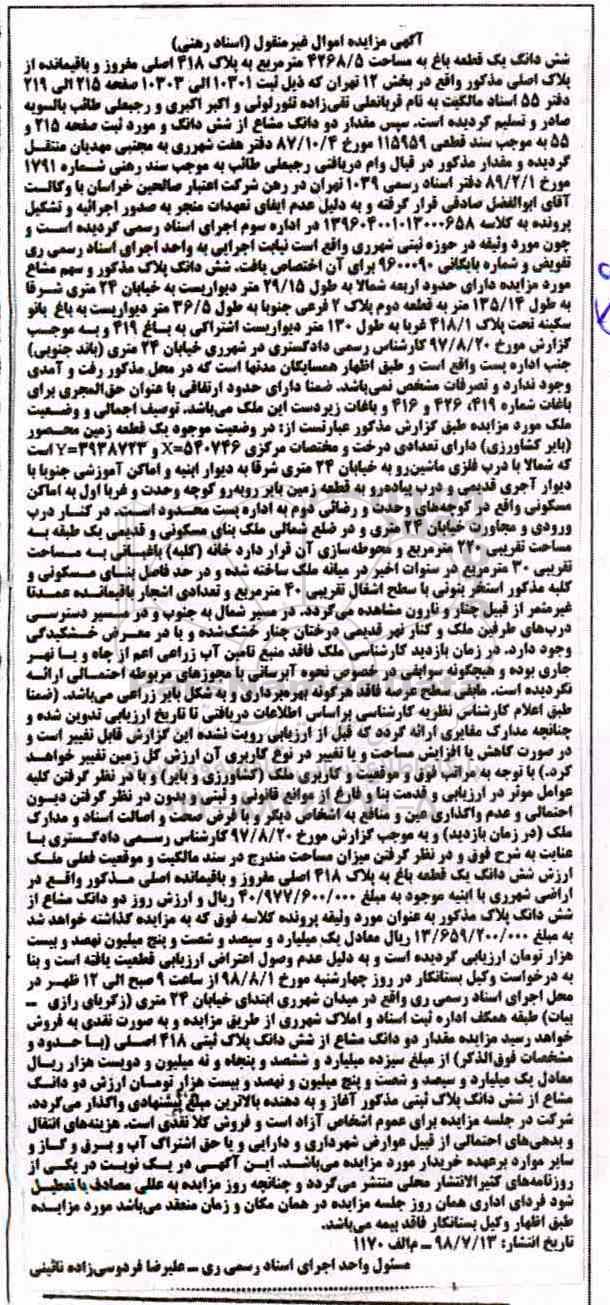 آگهی مزایده اموال غیرمنقول (اسناد رهنی)
شش دانگ یک قطعه باغ به مساحت ۴۲۶۸/۵ مترمربع به پلاک ۴۱۸ اصلی مفروز و باقیمانده از
پلاک اصلی مذکور واقع در بخش ۱۲ تهران که ذیل ثبت ۱۰۳۰۱ الی ۱۰۳۰۳ صفحه ۲۱۵ الی ۲۱۹
دفتر ۵۵ اسناد مالکیت به نام قربانعلی تقی‌زاده تئورلوئی و اکبر اکبری و رجبعلی طائب بالسویه
صادر و تسلیم گردیده است. سپس مقدار دو دانگ مشاع از شش دانگ و مورد ثبت صفحه ۲۱۵ و
۵۵ به موجب سند قطعی ۱۱۵۹۵۹ مورخ ۸۷/۱۰/۴ دفتر هفت شهرری به مجتبی مهدیان منتقل
گردیده و مقدار مذکور در قبال وام دریافتی رجبعلی طائب به موجب سند رهنی شماره ۱۷۹۱
مورخ ۸۹/۲/۱ دفتر اسناد رسمی ۱۰۳۹ تهران در رهن شرکت اعتبار صالحین خراسان با وکالت
آقای ابوالفضل صادقی قرار گرفته و به دلیل عدم ایفای تعهدات منجر به صدور اجرائیه و تشکیل
پرونده به کلاسه ۱۳۹۶۰۴۰۰۱۰۱۳۰۰۰۶۵۸ در اداره سوم اجرای اسناد رسمی گردیده است و
چون مورد وثیقه در حوزه ثبتی شهرری واقع است نیابت اجرایی به واحد اجرای اسناد رسمی ری
تفویض و شماره بایگانی ۹۶۰۰۰۹۰ برای آن اختصاص یافت. شش دانگ پلاک مذکور و سهم مشاع
مورد مزایده دارای حدود اربعه شمالا به طول ۲۹/۱۵ متر دیواریست به خیابان ۲۴ متری شرقا
به طول ۱۳۵/۱۴ متر به قطعه دوم پلاک ۲ فرعی جنوبا به طول ۳۶/۵ متر دیواریست به باغ بانو
سکینه تحت پلاک ۴۱۸/۱ غربا به طول ۱۳۰ متر دیواریست اشتراکی به باغ ۴۱۹ و به موجب
گزارش مورخ ۹۷/۸/۲۰ کارشناس رسمی دادگستری در شهرری خیابان ۲۴ متری (باند جنوبی)
جنب اداره پست واقع است و طبق اظهار همسایگان مدتها است که در محل مذکور رفت و آمدی
وجود ندارد و تصرفات مشخص نمی‌باشد. ضمنا دارای حدود ارتفاقی با عنوان حق‌المجری برای
باغات شماره ۴۱۹، ۴۲۶ و ۴۱۶ و باغات زیردست این ملک می‌باشد. توصیف اجمالی و وضعیت
ملک مورد مزایده طبق گزارش مذکور عبارتست از: در وضعیت موجود یک قطعه زمین محصور
(بایر کشاورزی) دارای تعدادی درخت و مختصات مرکزی X=۵۴۰۷۴۶ و Y=۳۹۳۸۷۲۳ است
که شمالا با درب فلزی ماشین‌رو به خیابان ۲۴ متری شرقا به دیوار ابنیه و اماکن آموزشی جنوبا با
دیوار آجری قدیمی و درب پیاده‌رو به قطعه زمین بایر روبه‌رو کوچه وحدت و غربا اول به اماکن
مسکونی واقع در کوچه‌های وحدت و رضائی دوم به اداره پست محدود است. در کنار درب
ورودی و مجاورت خیابان ۲۴ متری و در ضلع شمالی ملک بنای مسکونی و قدیمی یک طبقه به
مساحت تقریبی ۲۲۰ مترمربع و محوطه‌سازی آن قرار دارد خانه (کلبه) باغبانی به مساحت
تقریبی ۳۰ مترمربع در سنوات اخیر در میانه ملک ساخته شده و در حد فاصل بنای مسکونی و
کلبه مذکور استخر بتونی با سطح اشغال تقریبی ۴۰ مترمربع و تعدادی اشجار باقیمانده عمدتا
غیرمثمر از قبیل چنار و نارون مشاهده می‌گردد. در مسیر شمال به جنوب و در مسیر دسترسی
درب‌های طرفین ملک و کنار نهر قدیمی درختان چنار خشک‌شده و یا در معرض خشکیدگی
وجود دارد. در زمان بازدید کارشناسی ملک فاقد منبع تامین آب زراعی اعم از چاه و یا نهر
جاری بوده و هیچگونه سوابقی در خصوص نحوه آبرسانی یا مجوزهای مربوطه احتمالی ارائه
نگردیده است. مابقی سطح عرصه فاقد هرگونه بهره‌برداری و به شکل بایر زراعی می‌باشد. (ضمنا
طبق اعلام کارشناس نظریه کارشناسی براساس اطلاعات دریافتی تا تاریخ ارزیابی تدوین شده و
چنانچه مدارک مغایری ارائه گردد که قبل از ارزیابی رویت نشده این گزارش قابل تغییر است و
در صورت کاهش یا افزایش مساحت و یا تغییر در نوع کاربری آن ارزش کل زمین تغییر خواهد
کرد.) با توجه به مراتب فوق و موقعیت و کاربری ملک (کشاورزی و بایر) و با در نظر گرفتن کلیه
عوامل موثر در ارزیابی و قدمت بنا و فارغ از موانع قانونی و ثبتی و بدون در نظر گرفتن دیون
احتمالی و عدم واگذاری عین و منافع به اشخاص دیگر و با فرض صحت و اصالت اسناد و مدارک
ملک (در زمان بازدید) و به موجب گزارش مورخ ۹۷/۸/۲۰ کارشناس رسمی دادگستری با
عنایت به شرح فوق و در نظر گرفتن میزان مساحت مندرج در سند مالکیت و موقعیت فعلی ملک
ارزش شش دانگ یک قطعه باغ به پلاک ۴۱۸ اصلی مفروز و باقیمانده اصلی مذکور واقع در
اراضی شهرری با ابنیه موجود به مبلغ ۴۰/۹۷۷/۶۰۰/۰۰۰ ریال و ارزش روز دو دانگ مشاع از
شش دانگ پلاک مذکور به عنوان مورد وثیقه پرونده کلاسه فوق که به مزایده گذاشته خواهد شد
به مبلغ ۱۳/۶۵۹/۲۰۰/۰۰۰ ریال معادل یک میلیارد و سیصد و شصت و پنج میلیون نهصد و بیست
هزار تومان ارزیابی گردیده است و به دلیل عدم وصول اعتراض ارزیابی قطعیت یافته است و بنا
به درخواست وکیل بستانکار در روز چهارشنبه مورخ ۹۸/۸/۱ از ساعت ۹ صبح الی ۱۲ ظهر در
محل اجرای اسناد رسمی ری واقع در میدان شهرری ابتدای خیابان ۲۴ متری (زکریای رازی ـ
بیات) طبقه همکف اداره ثبت اسناد و املاک شهرری از طریق مزایده و به صورت نقدی به فروش
خواهد رسید مزایده مقدار دو دانگ مشاع از شش دانگ پلاک ثبتی ۴۱۸ اصلی (با حدود و
مشخصات فوق‌الذکر) از مبلغ سیزده میلیارد و ششصد و پنجاه و نه میلیون و دویست هزار ریال
معادل یک میلیارد و سیصد و شصت و پنج میلیون و نهصد و بیست هزار تومان ارزش دو دانگ
مشاع از شش دانگ پلاک ثبتی مذکور آغاز و به دهنده بالاترین مبلغ پیشنهادی واگذار می‌گردد.
شرکت در جلسه مزایده برای عموم اشخاص آزاد است و فروش کلا نقدی است. هزینه‌های انتقال
و بدهی‌های احتمالی از قبیل عوارض شهرداری و دارایی و یا حق اشتراک آب و برق و گاز و
سایر موارد برعهده خریدار مورد مزایده می‌باشد. این آگهی در یک نوبت در یکی از
روزنامه‌های کثیرالانتشار محلی منتشر می‌گردد و چنانچه روز مزایده به عللی مصادف با تعطیل
شود فردای اداری همان روز جلسه مزایده در همان مکان و زمان منعقد می‌باشد مورد مزایده
طبق اظهار وکیل بستانکار فاقد بیمه می‌باشد.
تاریخ انتشار: ۹۸/۷/۱۳ ـ م‌الف ۱۱۷۰
مسئول واحد اجرای اسناد رسمی ری ـ علیرضا فردوسی‌زاده نائینی